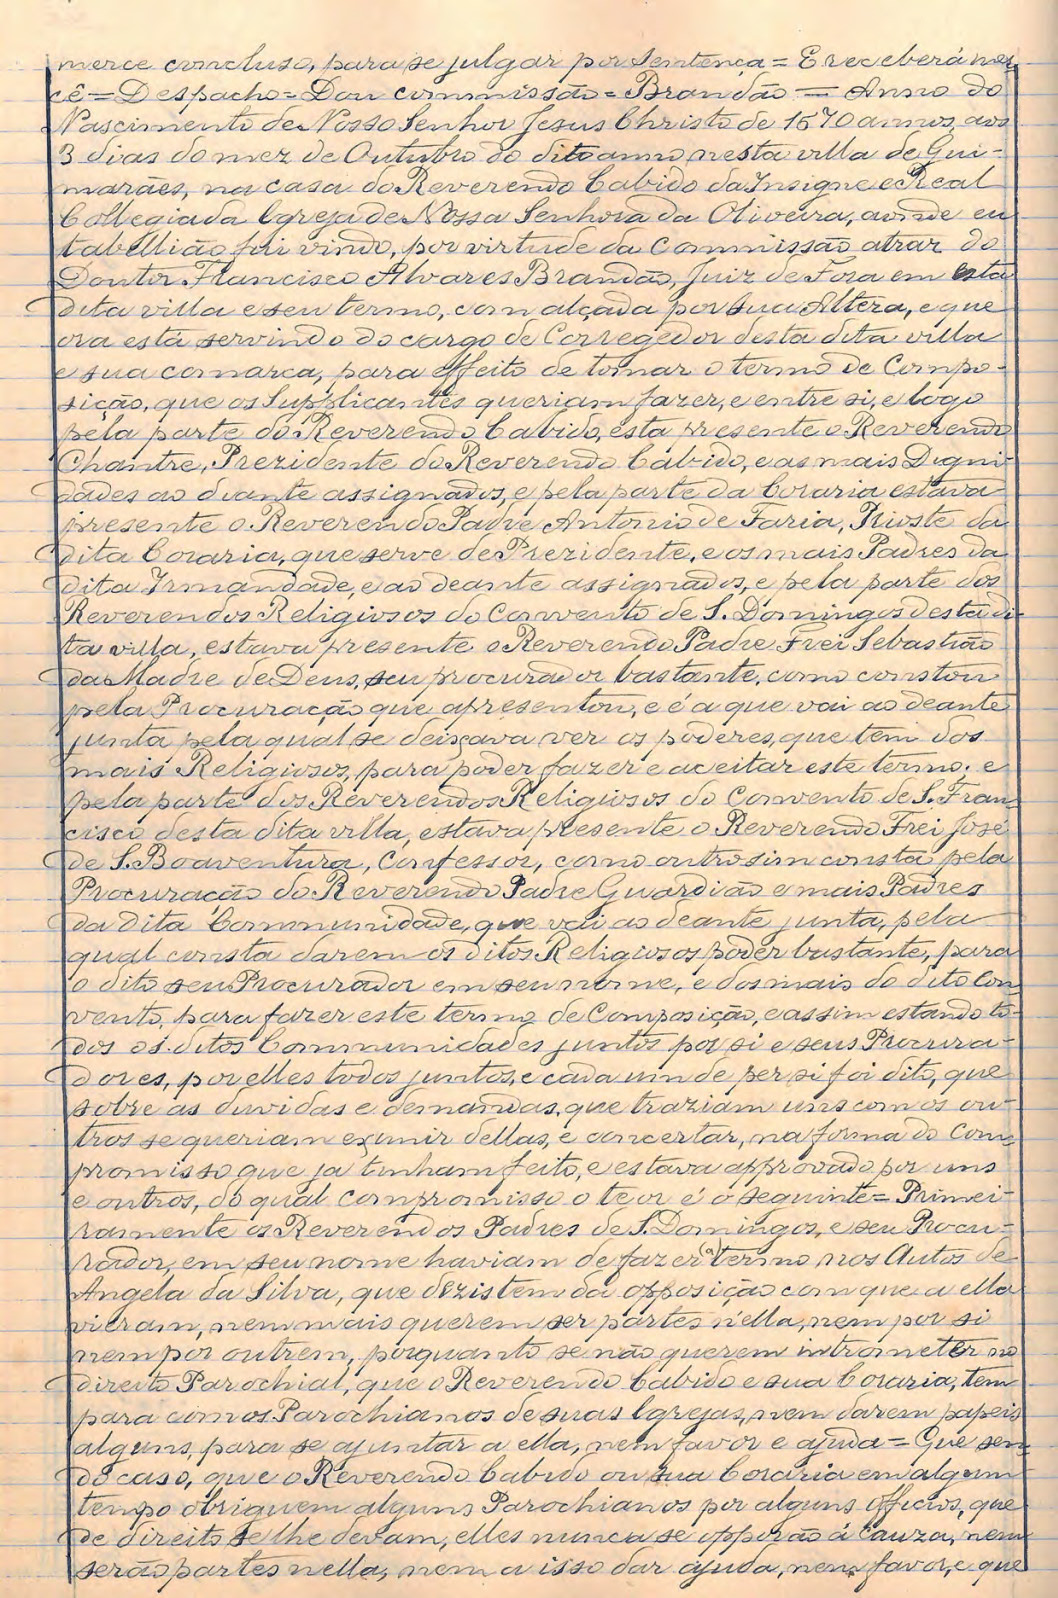 merce concluso, para se julgar por Sentença = E receberá mer-
cê = Despacho = Dou commissão = Brandão = Anno do
Nascimento de Nosso Senhor Jesus Christo de 1670 annos, aos
3 dias do mez de Outubro do dito anno, nesta villa de Gui-
marães, na casa do Reverendo Cabido da Insigne e Real
Collegiada Egreja de Nossa Senhora da Oliveira, aonde eu
tabellião fui vindo, por virtude da Commissão atraz do
Doutor Francisco Alvares Brandão, Juiz de Fora em esta
dita villa e seu termo, com alçada por sua Alteza, e que
ora está servindo do cargo de Corregedor desta dita villa
e sua comarca, para effeito de tomar o termo de Compo-
sição, que os Supplicantes queriam fazer, e entre si, e logo
pela parte do Reverendo Cabido, esta presente o Reverendo
Chantre, Prezidente do Reverendo Cabido, e as mais Digni-
dades ao deante assignados, e pela parte da Coraria estava
presente o Reverendo Padre Antonio de Faria, Prioste da
dita Coraria, que serve de Prezidente, e os mais Padres da
dita Irmandade, e ao deante assignados, e pela parte dos
Reverendos Religiosos do Convento de S. Domingos desta di-
ta villa, estava presente o Reverendo Padre Frei Sebastião
da Madre de Deus, seu procurador bastante, como constou
pela Procuração que apresentou, e é a que vai ao deante
junta pela qual se deixava ver os poderes, que tem dos
mais Religiosos, para poder fazer e aceitar este termo; e
pela parte dos Reverendos Religiosos do Convento de S. Fran-
cisco desta dita villa, estava presente o Reverendo Frei José
de S. Boaventura, Confessor, como outrosim consta pela
Procuração do Reverendo Padre Guardião e mais Padres
da dita Communidade, que vai ao deante junta, pela
qual consta darem os ditos Religiosos poder bastante, para
o dito seu Procurador em seu nome, e dos mais do dito Con-
vento, para fazer este termo de Composição, e assim estando to-
dos os ditos Communidades juntos por si e seus Procura-
dores, por elles todos juntos, e cada um de per si foi dito, que
sobre as duvidas e demandas, que traziam uns com os ou-
tros se queriam eximir dellas, e concertar, na forma do Com-
promisso que ja tinham feito, e estava approvado por uns
e outros, do qual compromisso o teor é o seguinte = Primei-
ramente os Reverendos Padres de S. Domingos, e seu Procu-
rador, em seu nome haviam de fazer (a) termo nos Autos de
Angela da Silva, que dezistem da opposição com que a ella
vieram, nem mais querem ser partes n'ella, nem por si
nem por outrem, porquanto se não querem intrometer no
direito Parochial, que o Reverendo Cabido e sua Coraria, tem
para com os Parochianos de suas Egrejas, nem darem papeis
alguns, para se ajuntar a ella, nem favor e ajuda = Que sen-
do caso, que o Reverendo Cabido ou sua Coraria em algum
tempo obriguem alguns Parochianos por alguns officios, que
de direito se lhe devam, elles nunca se opporão á cauza, nem
serão partes nella, nem a isso dar ajuda, nem favor, e que